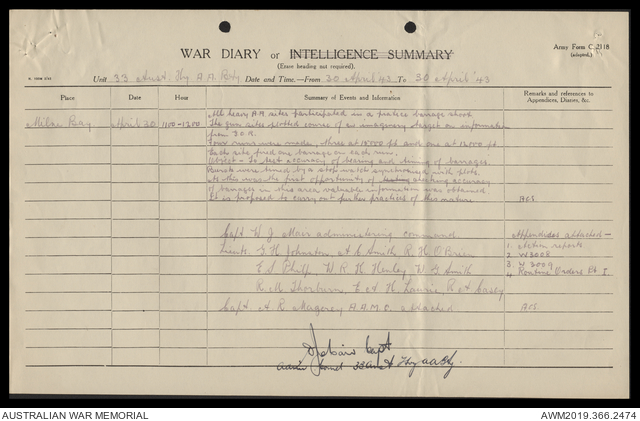 Army Form C. 2118
(adapted.)
WAR DIARY or INTELLIGENCE SUMMARY
(Erase heading not required).
Unit 33 Aust. Hvy A.A. Bty Date and Time.—From 30 April '43 To 30 April '43
Place Date Hour Summary of Events and Information Remarks and references to Appendices, Diaries, &c.
Milne Bay April 30 1100-1200 All heavy A.A. sites participated in a barrage shoot
The gun sites plotted course of an imaginary target on information
from G.O.R.
Four runs were made, three at 18000 ft and one at 12000 ft.
Each site fired one barrage on each run.
Object - To test accuracy of bearing and timing of barrages.
Bursts were timed by a stop watch synchronised with plots.
As this was the first opportunity of testing checking accuracy
of barrages in this area valuable information was obtained
It is proposed to carry out further practices of this nature
Capt W. J. Mars administering command Appendices attached—
Lieuts G. H. Johnston, A C Smith, R. H. O'Brien 1. Action reports
2. W3008
E S Philp, W. R. H. Henley W G Smith 3. W 3009
4 Routine Orders Pt I.
R. M. Thorburn, E A H Laurie, R A Casey
Capt A R A.A.M.C. attached
Capt
Comd 33 Aust Hvy AA Bty.
AUSTRALIAN WAR MEMORIAL
AWM2019.366.2474